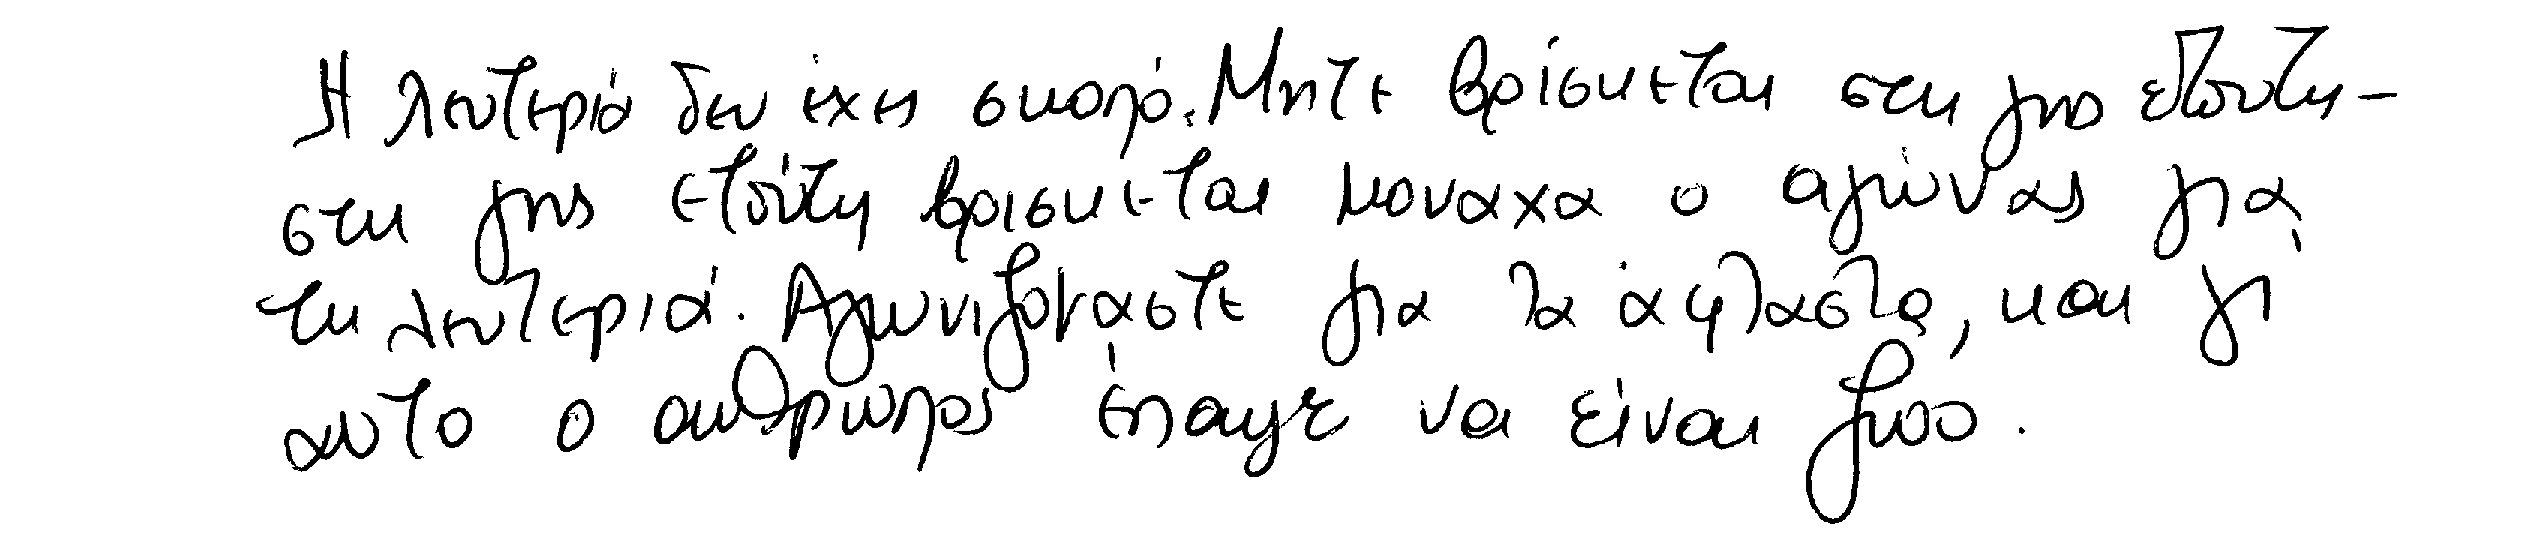 Η λευτεριά δεν έχει σκοπό. Μητε βρίσκεται στη γης ετουτη -
στη γης ετούτη βρισκεται μοναχα ο αγώνας για
τη λευτεριά. Αγωνιζόμαστε για τα άφταστα, και γι'
αυτο ο ανθρωπος έπαψε να είναι ζωο.